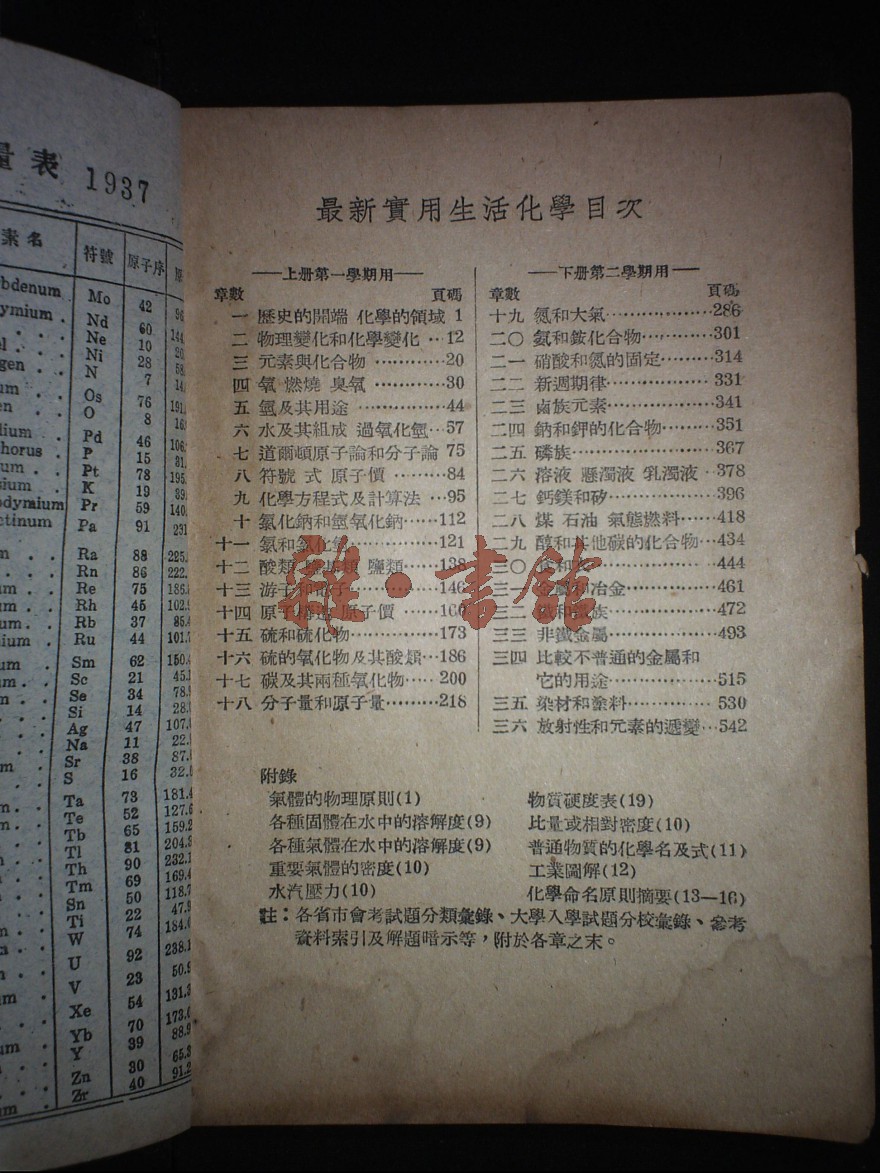 量表 1937
素名 符號 原子序
bdenum Mo 42
ymium . Nd 60 144.
Ne 10 20.
el Ni 28 58.
gen . . N 7 14.
um Os 76 191.
en O 8 16.
dium . Pd 46 106.
horus . P 15 31.
num . . Pt 78 195.
sium . K 19 39.
odymium Pr 59 140.
ctinum Pa 91 231
m . . Ra 88 225.
. . Rn 86 222.
um . . Re 75 186.
um . . Rh 45 102.9
um. . Rb 37 85.4
nium . Ru 44 101.7
um . . Sm 62 150.4
um . . Sc 21 45.1
m . . Se 34 78.9
Si 14 28.
Ag 47 107.
Na 11 22.
m . Sr 38 87.
S 16 32.
Ta 73 181.4
Te 52 127.6
Tb 65 159.2
Tl 81 204.3
Th 90 232.1
Tm 69 169.4
Sn 50 118.7
Ti 22 47.9
W 74 184.0
U 92 238.1
V 23 50.9
m Xe 54 131.3
Yb 70 173.0
um Y 39 88.9
Zn 30 65.3
um Zr 40 91.2
最新實用生活化學目次
上册第一學期用
章數 頁碼
一 歷史的開端 化學的領域 1
二 物理變化和化學變化 ··12
三 元素與化合物 ············20
四 氧 燃燒 臭氧 ············30
五 氫及其用途 ···············44
六 水及其組成 過氧化氫···57
七 道爾頓原子論和分子論 75
八 符號 式 原子價 ·········84
九 化學方程式及計算法 ···95
十 氯化鈉和氫氧化鈉······112
十一 氯和氯化氫············121
十二 酸類 鹽基類 鹽類···138
十三 游子和電子············146
十四 原子構造 原子價 ···160
十五 硫和硫化物············173
十六 硫的氧化物及其酸類···186
十七 碳及其兩種氧化物·····200
十八 分子量和原子量·········218
下册第二學期用
章數 頁碼
十九 氮和大氣···············286
二〇 氨和銨化合物············301
二一 硝酸和氮的固定·········314
二二 新週期律··············· 331
二三 鹵族元素···············341
二四 鈉和鉀的化合物·········351
二五 磷族··················367
二六 溶液 懸濁液 乳濁液 ··378
二七 鈣鎂和矽···············396
二八 煤 石油 氣態燃料······418
二九 醇和其他碳的化合物···434
三〇 ··· 444
三一 金屬和冶金············461
三二 鐵和鐵族···············472
三三 非鐵金屬···············493
三四 比較不普通的金屬和
它的用途···············515
三五 染材和塗料············ 530
三六 放射性和元素的遞變···542
附錄
氣體的物理原則(1)
各種固體在水中的溶解度(9)
各種氣體在水中的溶解度(9)
重要氣體的密度(10)
水汽壓力(10)
物質硬度表(19)
比量或相對密度(10)
普通物質的化學名及式(11)
工業圖解(12)
化學命名原則摘要(13—16)
註：各省市會考試題分類彙錄、大學入學試題分校彙錄、參考
資料索引及解題暗示等，附於各章之末。
雜·書館